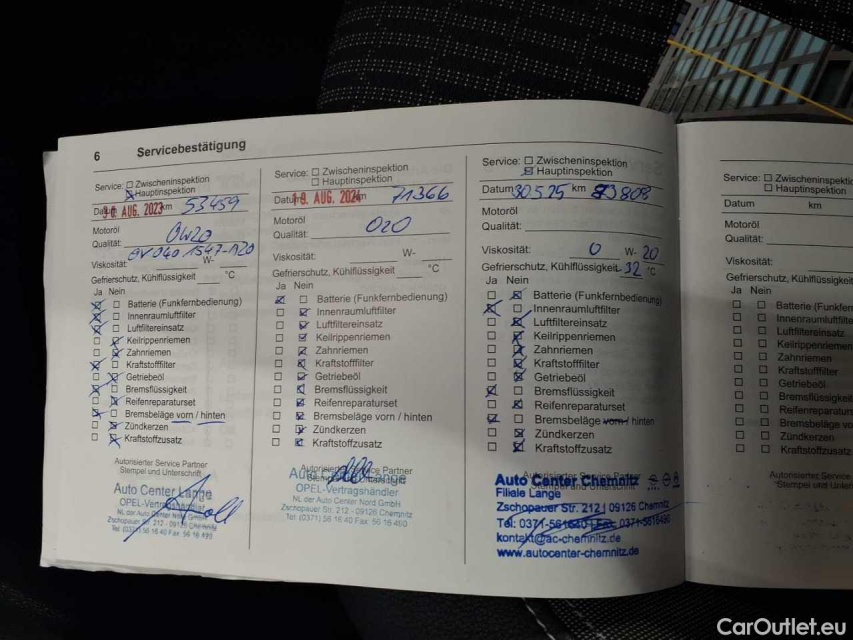 6 Servicebestätigung
Service: Zwischeninspektion
Hauptinspektion
Datum 30. AUG. 2023 km 53459
Motoröl
Qualität: 0W20
OV 040 1547-A20
Viskosität: W-
Gefrierschutz, Kühlflüssigkeit °C
Ja Nein
Batterie (Funkfernbedienung)
Innenraumluftfilter
Luftfiltereinsatz
Keilrippenriemen
Zahnriemen
Kraftstofffilter
Getriebeöl
Bremsflüssigkeit
Reifenreparaturset
Bremsbeläge vorn / hinten
Zündkerzen
Kraftstoffzusatz
Autorisierter Service Partner
Stempel und Unterschrift
Auto Center Lange
OPEL-Vertragshändler
NL der Auto Center Nord GmbH
Zschopauer Str. 212 - 09126 Chemnitz
Tel. (0371) 56 16 40 Fax: 56 16 490
Service: Zwischeninspektion
Hauptinspektion
Datum 19. AUG. 2024 km 71366
Motoröl
Qualität: 020
Viskosität: W-
Gefrierschutz, Kühlflüssigkeit °C
Ja Nein
Batterie (Funkfernbedienung)
Innenraumluftfilter
Luftfiltereinsatz
Keilrippenriemen
Zahnriemen
Kraftstofffilter
Getriebeöl
Bremsflüssigkeit
Reifenreparaturset
Bremsbeläge vorn / hinten
Zündkerzen
Kraftstoffzusatz
Autorisierter Service Partner
Stempel und Unterschrift
Auto Center Lange
OPEL-Vertragshändler
NL der Auto Center Nord GmbH
Zschopauer Str. 212 - 09126 Chemnitz
Tel. (0371) 56 16 40 Fax: 56 16 490
Service: Zwischeninspektion
Hauptinspektion
Datum 30.5.25 km 83808
Motoröl
Qualität:
Viskosität: 0 W- 20
Gefrierschutz, Kühlflüssigkeit -32 °C
Ja Nein
Batterie (Funkfernbedienung)
Innenraumluftfilter
Luftfiltereinsatz
Keilrippenriemen
Zahnriemen
Kraftstofffilter
Getriebeöl
Bremsflüssigkeit
Reifenreparaturset
Bremsbeläge vorn / hinten
Zündkerzen
Kraftstoffzusatz
Autorisierter Service Partner
Stempel und Unterschrift
Auto Center Chemnitz
Filiale Lange
Zschopauer Str. 212 | 09126 Chemnitz
Tel: 0371-561640 | Fax: 0371-5616490
kontakt@ac-chemnitz.de
www.autocenter-chemnitz.de
Service: Zwischeninspekt
Hauptinspektion
Datum km
Motoröl
Qualität:
Viskosität:
Gefrierschutz, Kühlflüssigke
Ja Nein
Batterie (Funkfern
Innenraumluftfilte
Luftfiltereinsatz
Keilrippenriemen
Zahnriemen
Kraftstofffilter
Getriebeöl
Bremsflüssigkeit
Reifenreparatur
Bremsbeläge vo
Zündkerzen
Kraftstoffzusatz
Autorisierter Service
Stempel und Unter
CarOutlet.eu